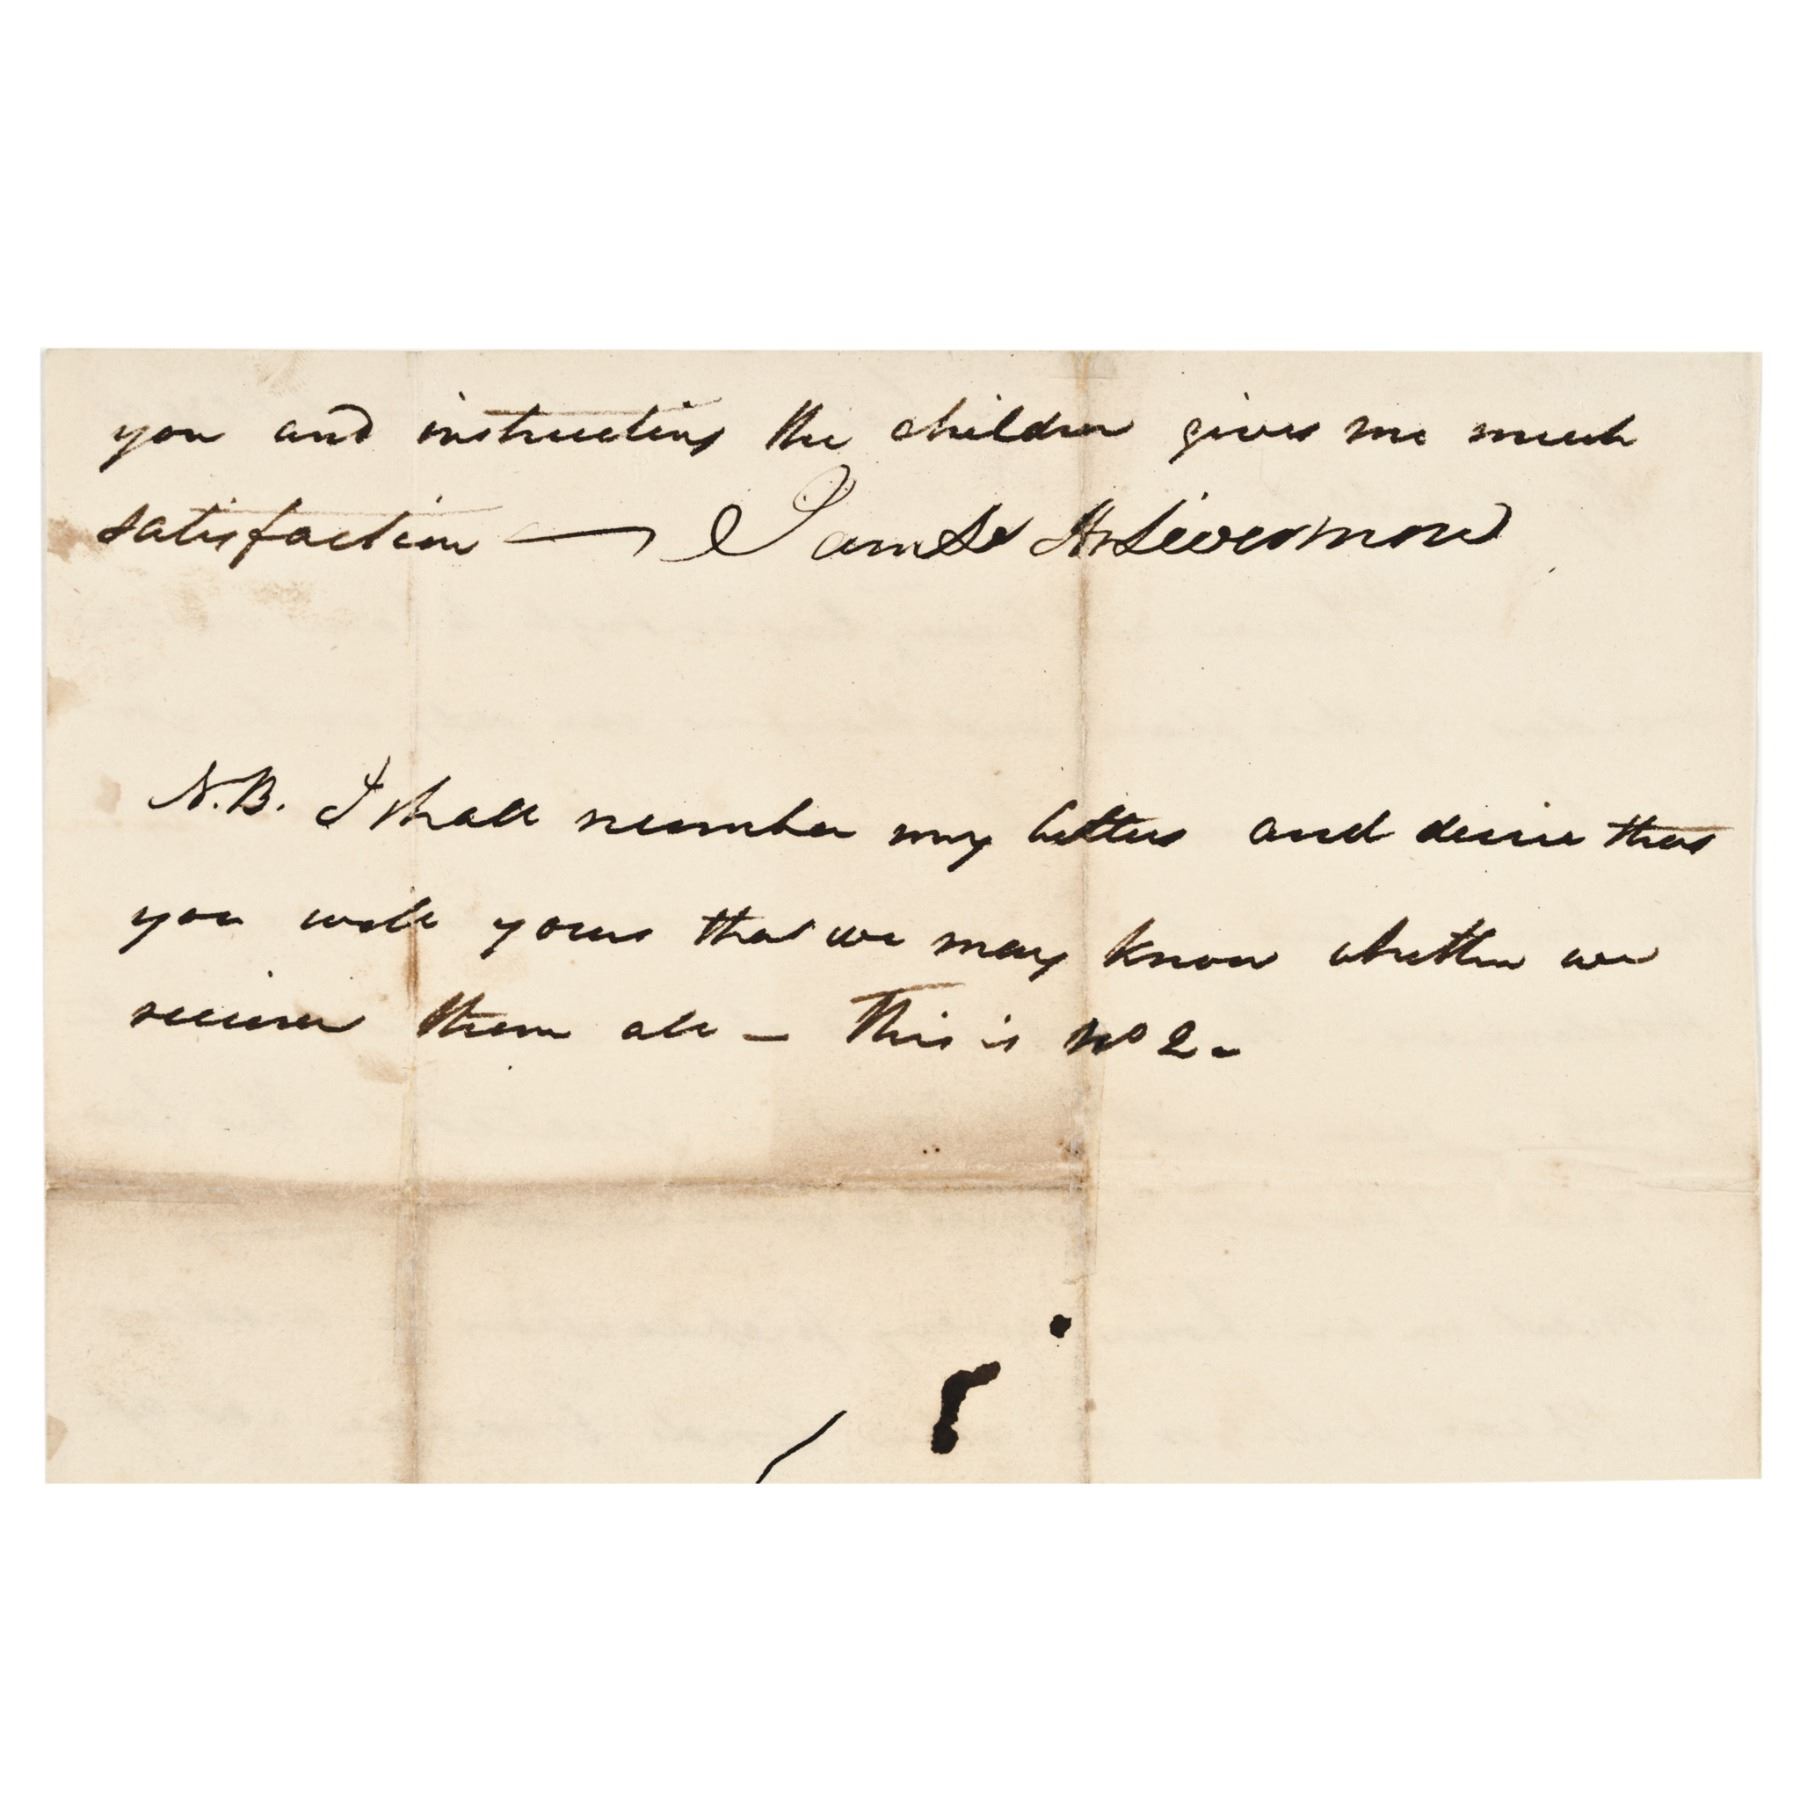 you and instructing the children gives me much
satisfaction — Sam St Livermore
N.B. I shall number my letters and desire that
you will yours that we may know whether we
receive them all — This is No 2 -